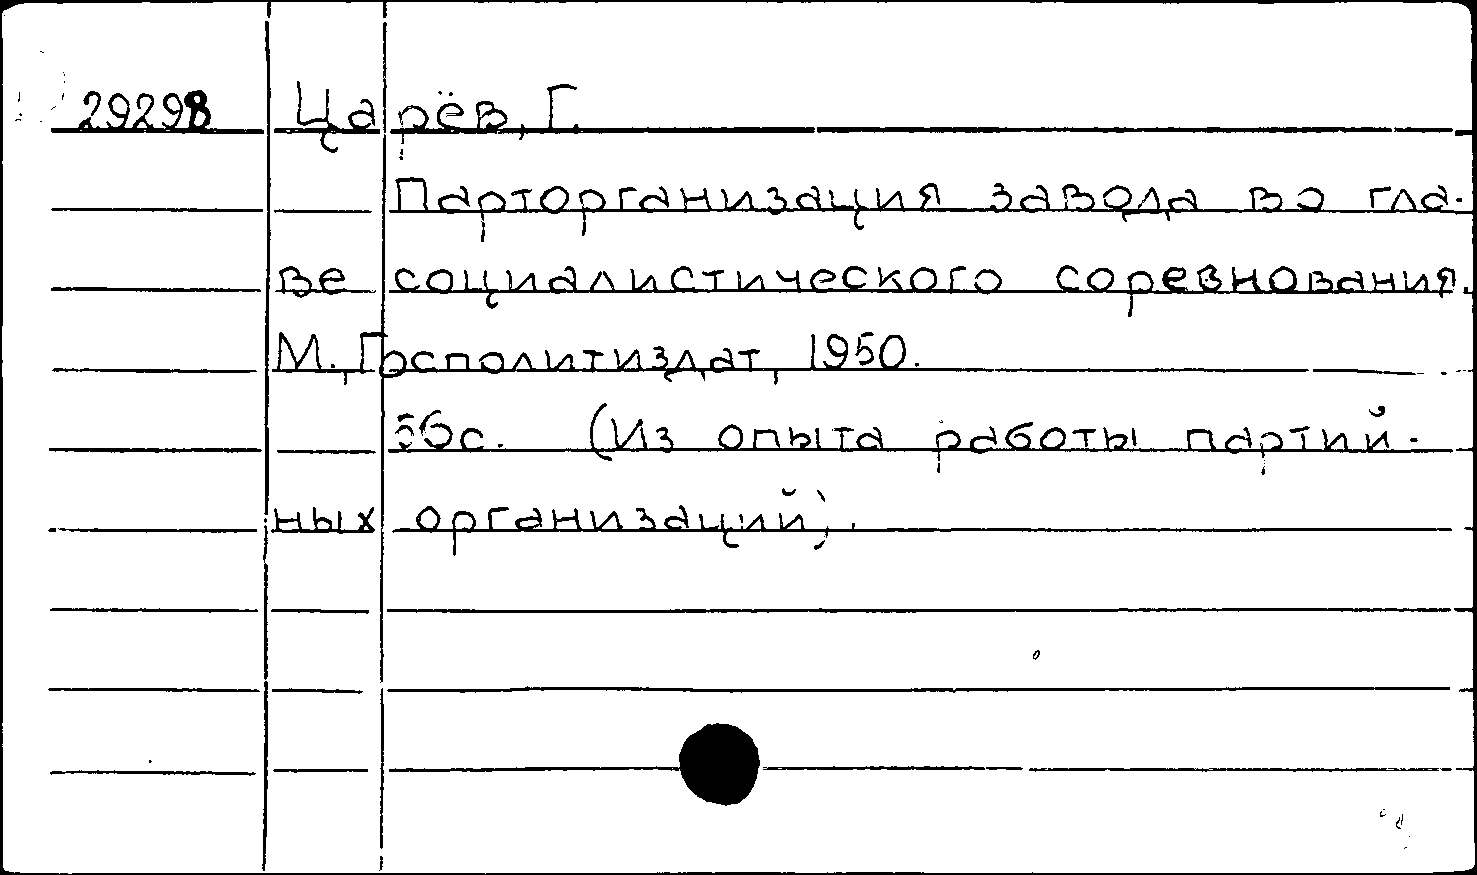 29298 Царёв, Г.
Парторганизация завода во гла-
ве социалистического соревнования.
М., Госполитиздат, 1950.
56с. (Из опыта работы партий-
ных организаций).